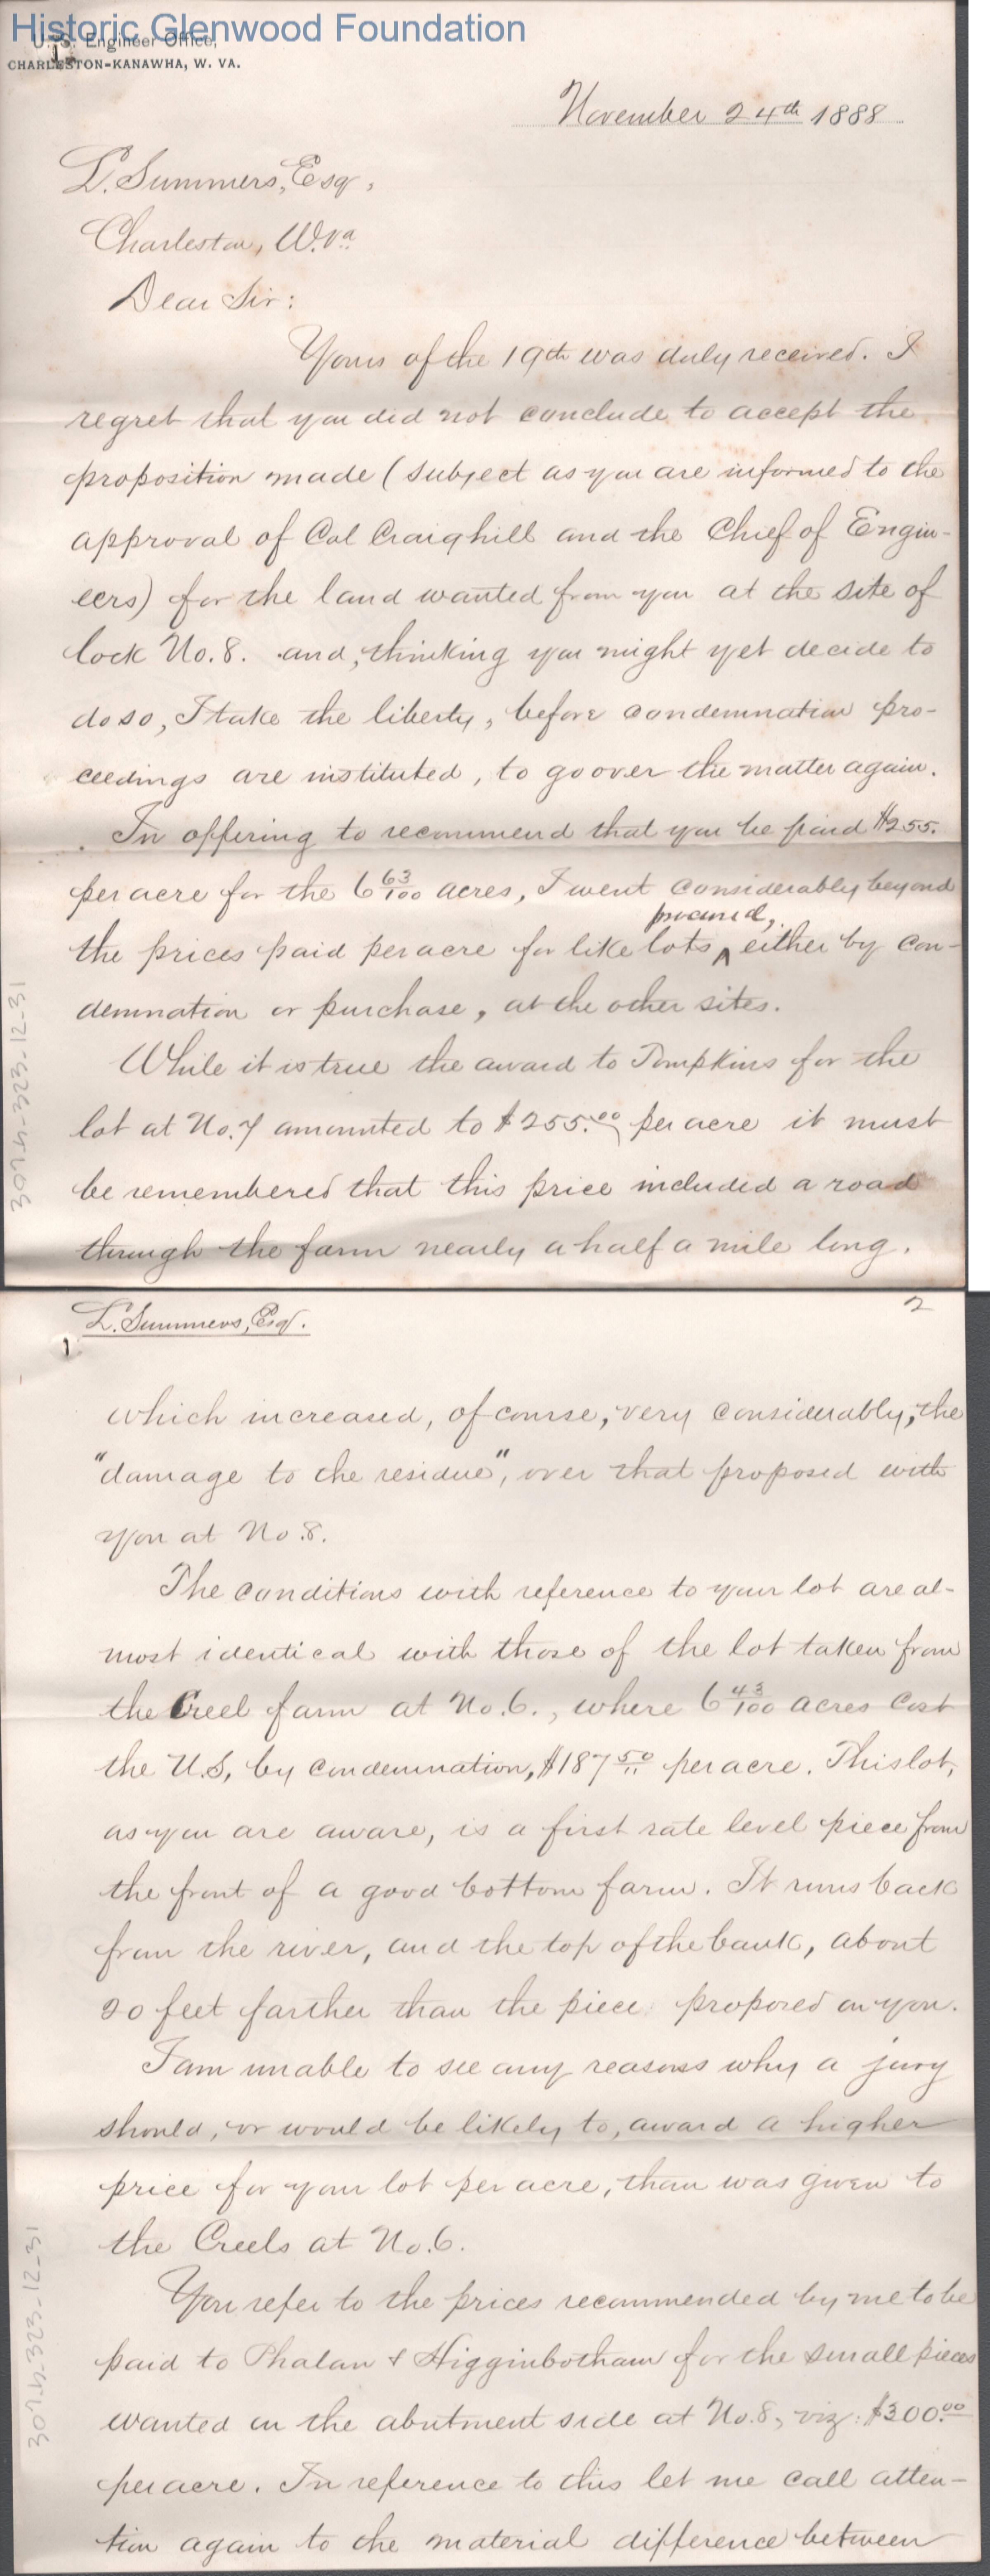 Historic Glenwood Foundation
U.S. Engineer Office,
CHARLESTON-KANAWHA, W. VA.
November 24th 1888
L. Summers, Esq,
Charleston, W.Va
Dear Sir:
Yours of the 19th was duly received. I
regret that you did not conclude to accept the
proposition made (subject as you are informed to the
approval of Col Craighill and the Chief of Engin-
eers) for the land wanted from you at the site of
lock No. 8. and, thinking you might yet decide to
do so, I take the liberty, before condemnation pro-
ceedings are instituted, to go over the matter again.
In offering to recommend that you be paid $255.
per acre for the 6 63/100 acres, I went considerably beyond
procured,
the prices paid per acre for like lots ^ either by con-
demnation or purchase, at the other sites.
While it is true the award to Tompkins for the
lot at No. 7 amounted to $255.00 per acre it must
be remembered that this price included a road
through the farm nearly a half a mile long.
3074-323-12-31
L. Summers, Esq.
2
which increased, of course, very considerably, the
"damage to the residue", over that proposed with
you at No 8.
The conditions with reference to your lot are al-
most identical with those of the lot taken from
the Creel farm at No. 6., where 6 43/100 acres cost
the U.S, by condemnation, $187 50 per acre. This lot,
as you are aware, is a first rate level piece from
the front of a good bottom farm. It runs back
from the river, and the top of the bank, about
20 feet farther than the piece proposed on you.
I am unable to see any reasons why a jury
should, or would be likely to, award a higher
price for your lot per acre, than was given to
the Creels at No. 6.
You refer to the prices recommended by me to be
paid to Phalan & Higginbotham for the small pieces
wanted on the abutment side at No. 8, viz: $300.00
per acre. In reference to this let me call atten-
tion again to the material difference between
3074-323-12-31